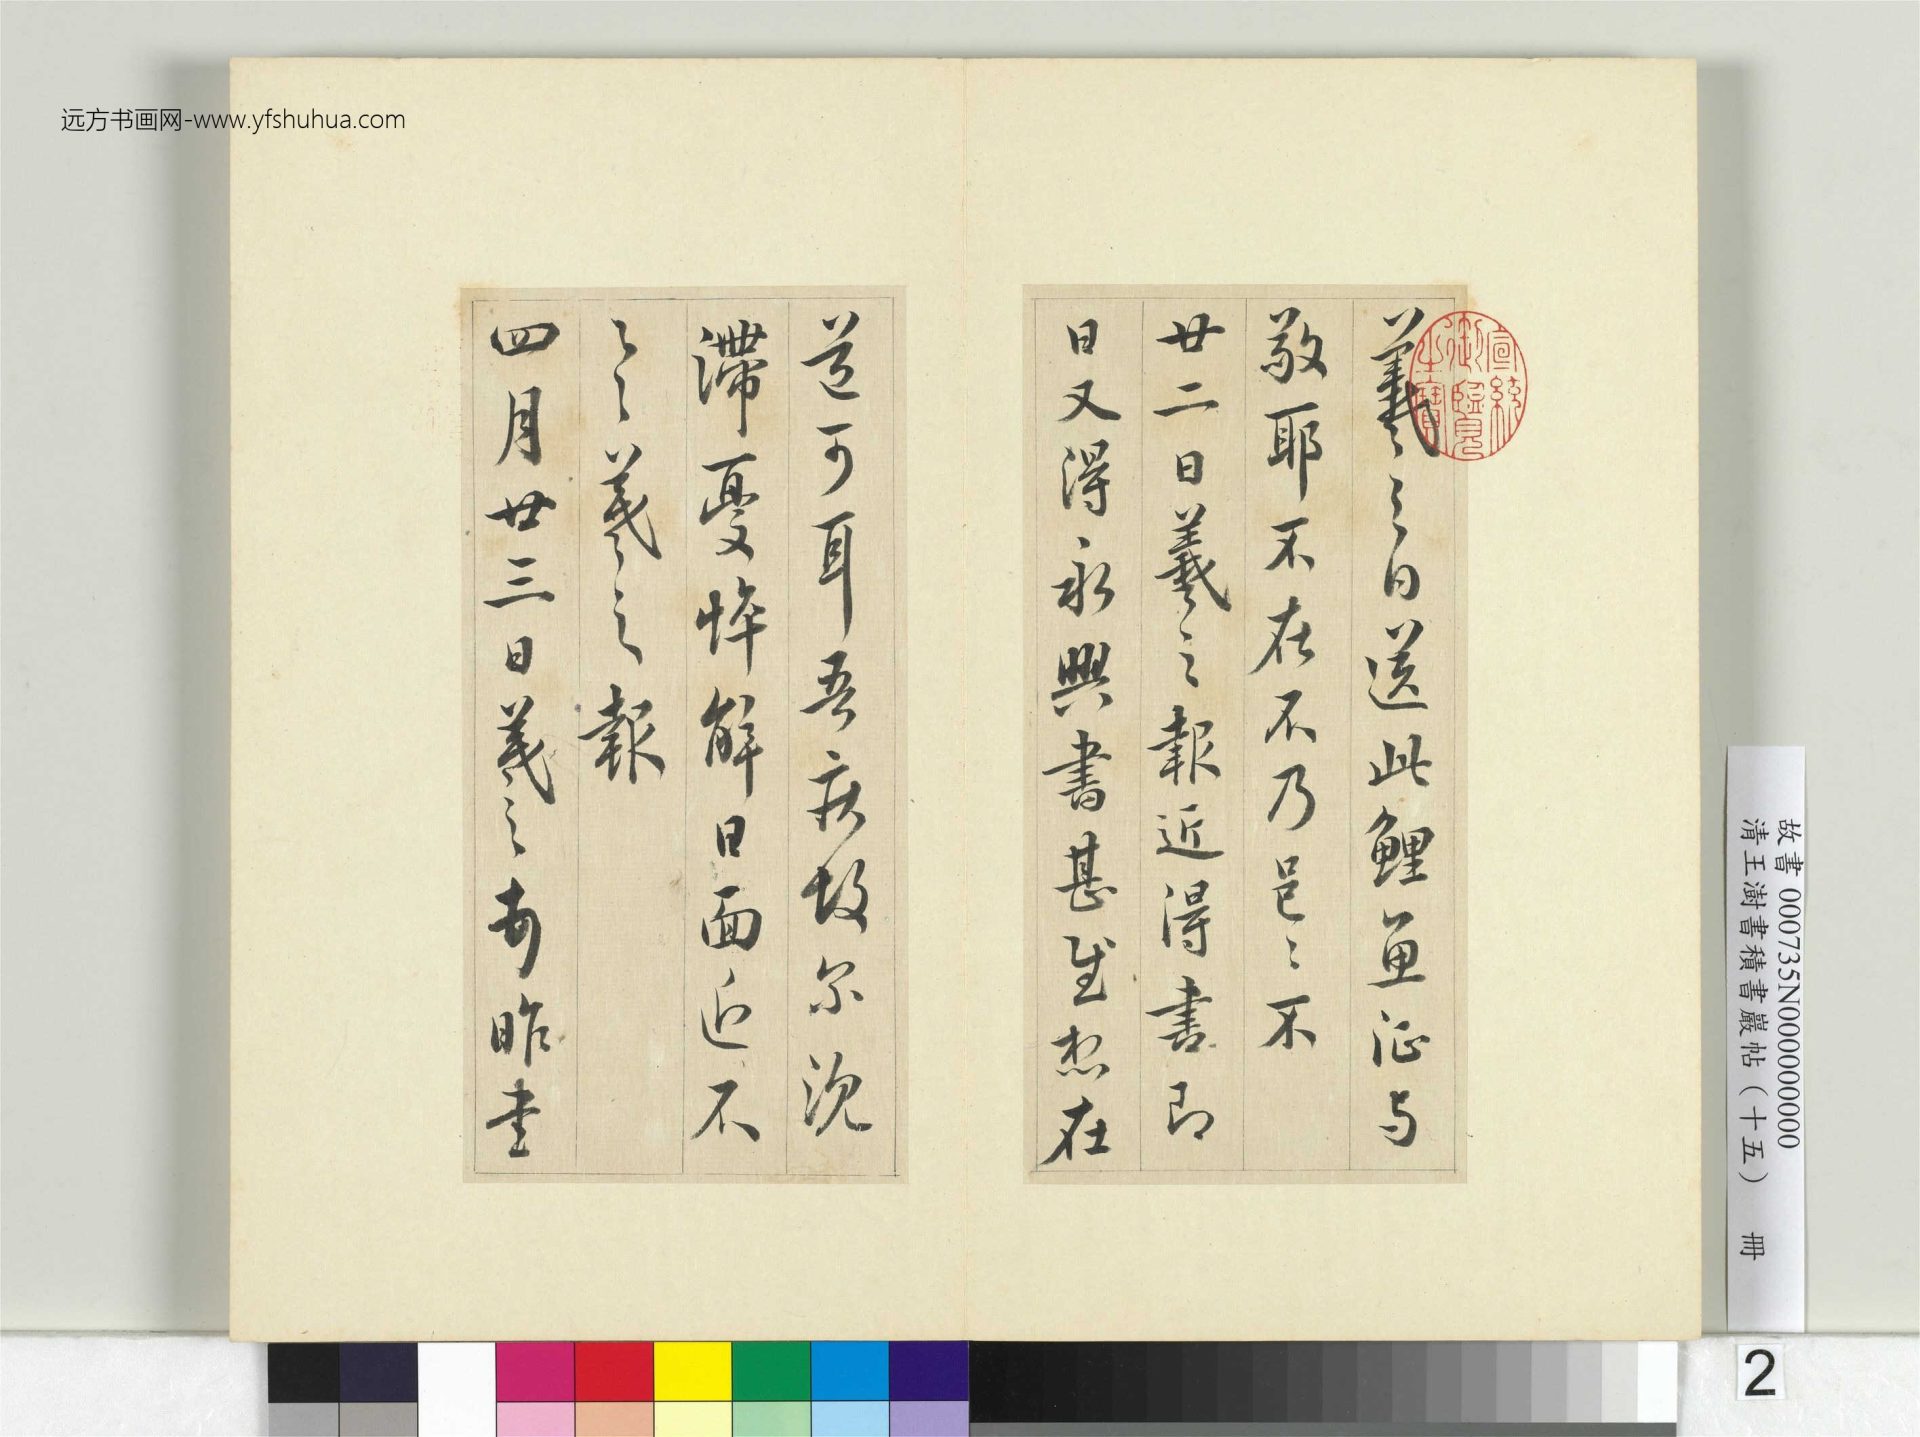 远方书画网-www.yfshuhua.com
羲之曰送此鯉魚征与
敬耶不在不乃邑〻不
廿二日羲之報近得書即
日又得永興書甚慰想在
道可耳吾疾故尔沈
滯憂悴解日面近不
具羲之報
四月廿三日羲之頓昨書
宣統御覽之寶
故書 000735N000000000
清王澍書積書巖帖（十五） 冊
2